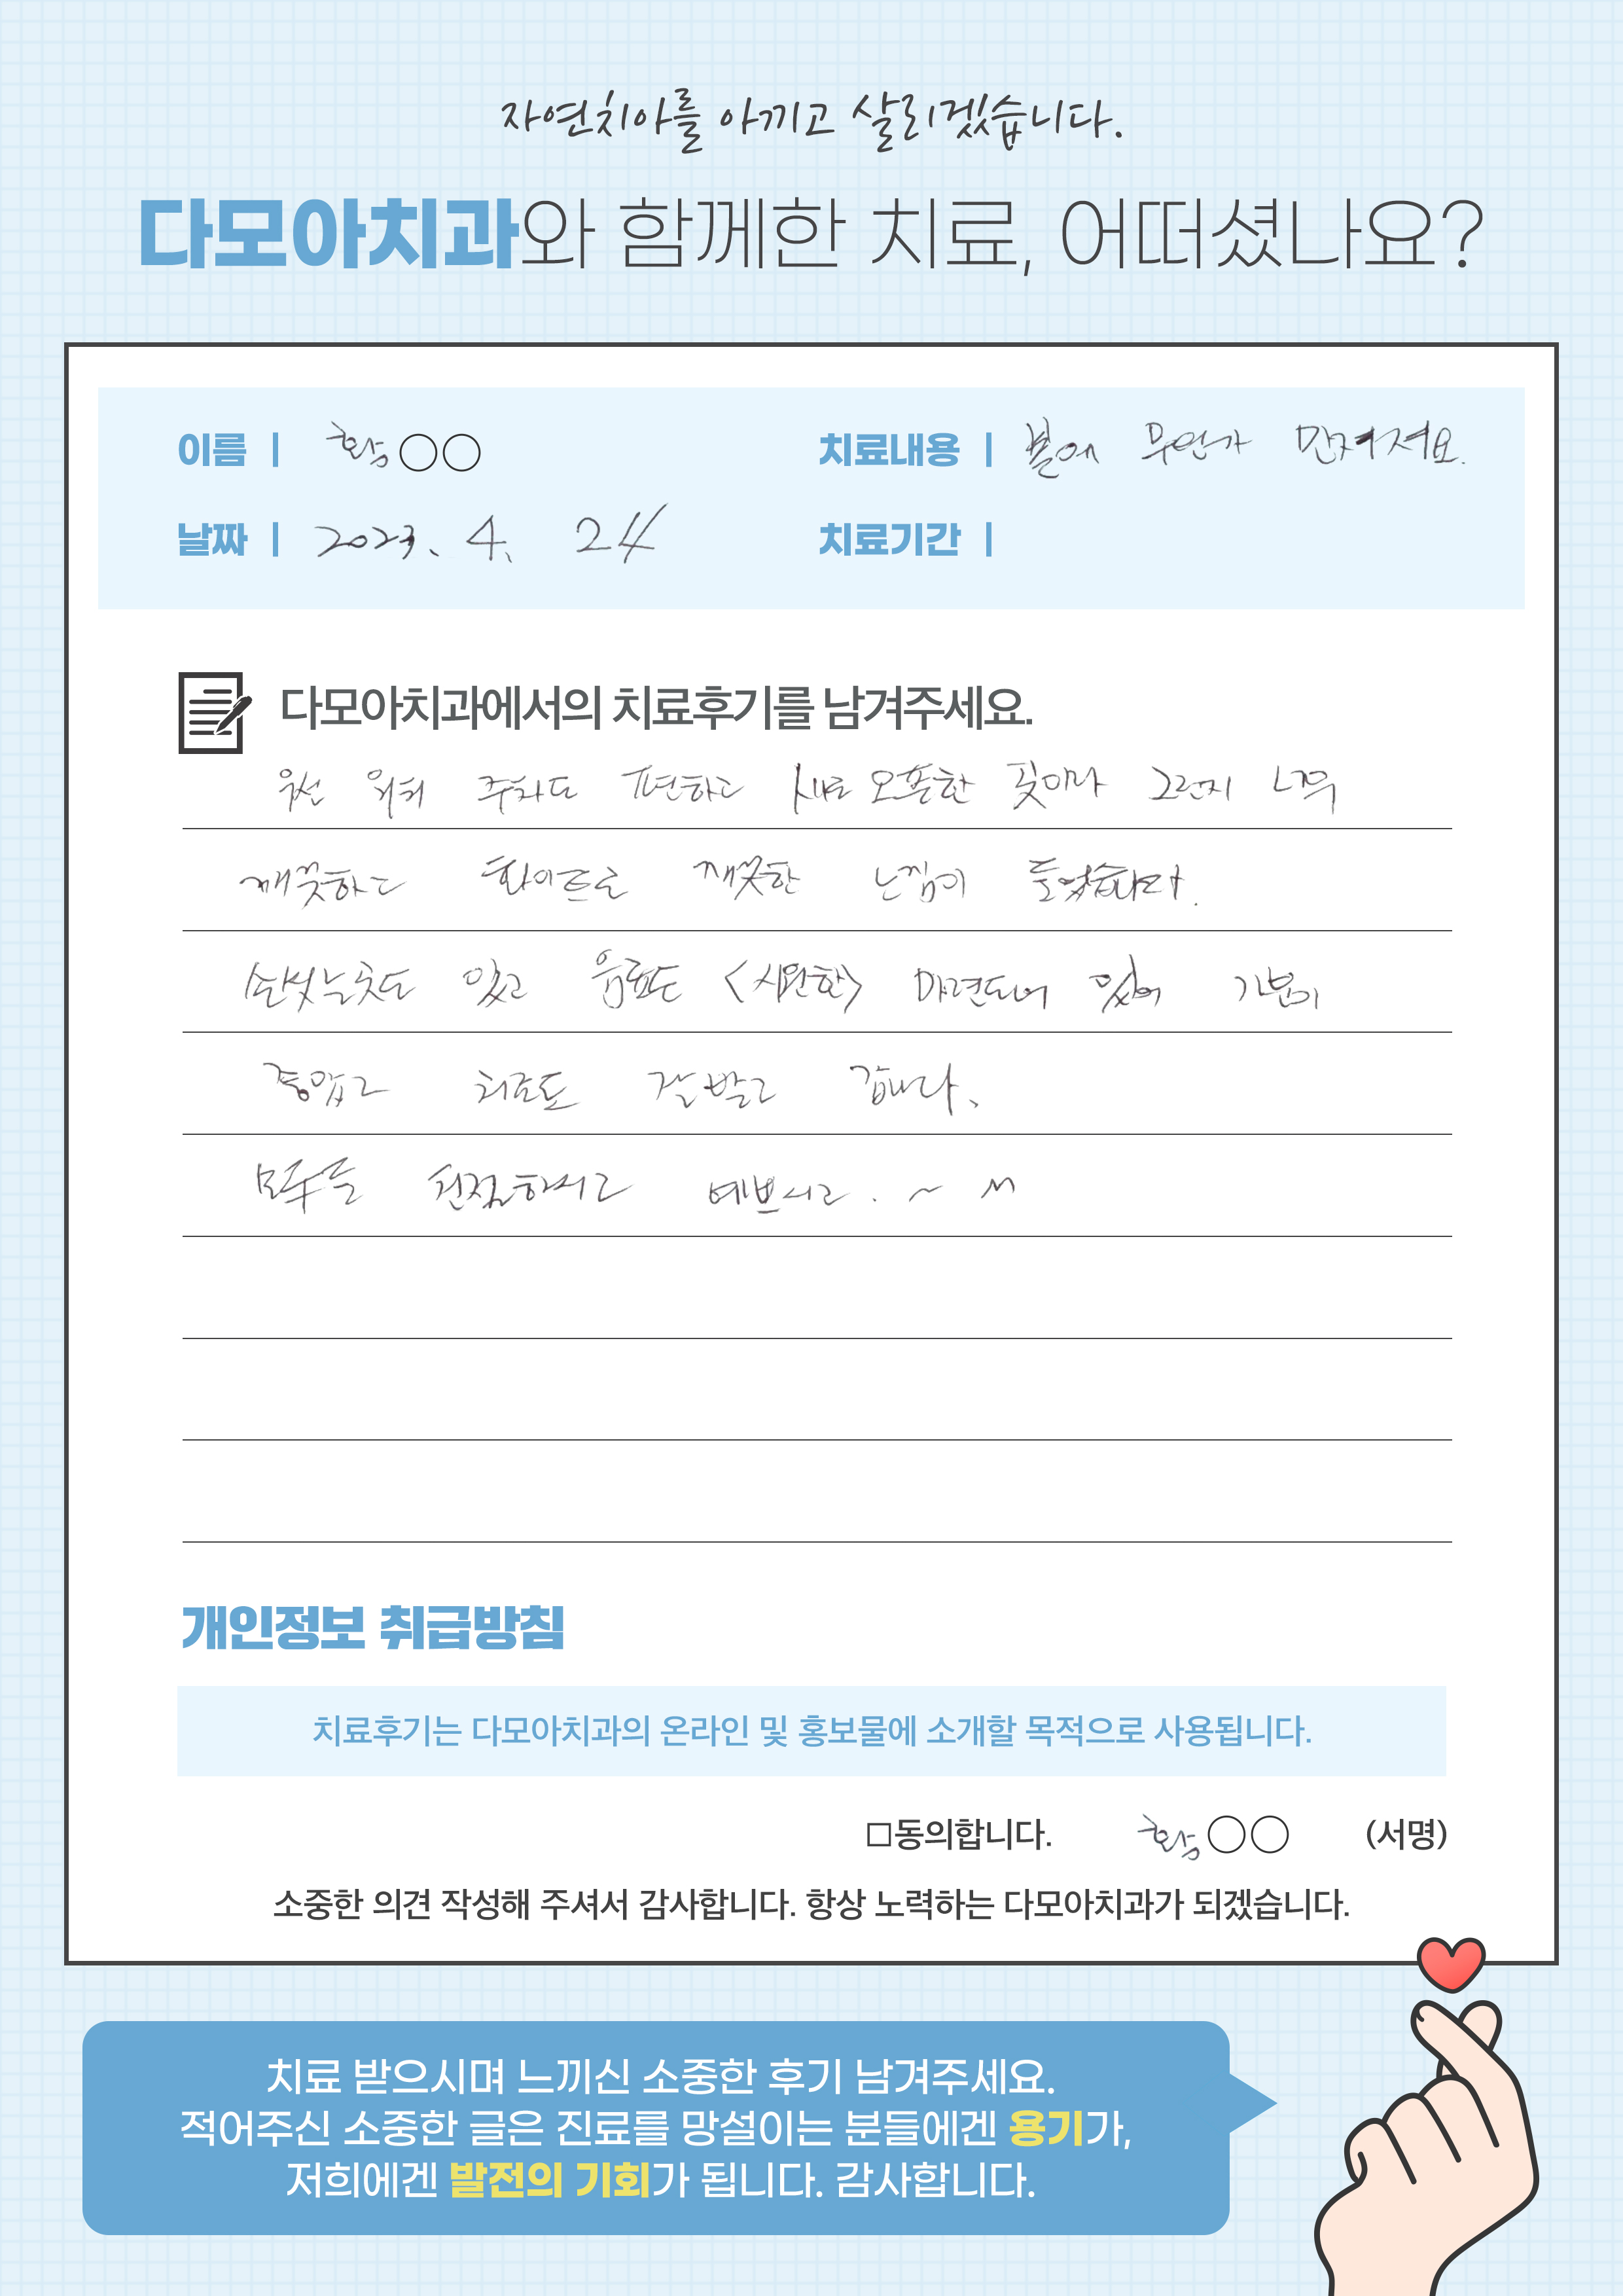 자연치아를 아끼고 살리겠습니다.
다모아치과와 함께한 치료, 어떠셨나요?
이름 | 황○○
치료내용 | 볼에 무언가 만져져요.
날짜 | 2023. 4. 24
치료기간 |
다모아치과에서의 치료후기를 남겨주세요.
우선 위치 주차도 편하고 새로 오픈한 곳이라 그런지 너무
깨끗하고 화이트로 깨끗한 느낌이 들었습니다.
손씻는곳도 있고 음료도 <시원한> 마련되어 있어 기분이
좋았고 치료도 잘받고 갑니다.
모두들 친절하시고 예쁘시고. ~
개인정보 취급방침
치료후기는 다모아치과의 온라인 및 홍보물에 소개할 목적으로 사용됩니다.
□동의합니다. 황○○ (서명)
소중한 의견 작성해 주셔서 감사합니다. 항상 노력하는 다모아치과가 되겠습니다.
치료 받으시며 느끼신 소중한 후기 남겨주세요.
적어주신 소중한 글은 진료를 망설이는 분들에겐 용기가,
저희에겐 발전의 기회가 됩니다. 감사합니다.